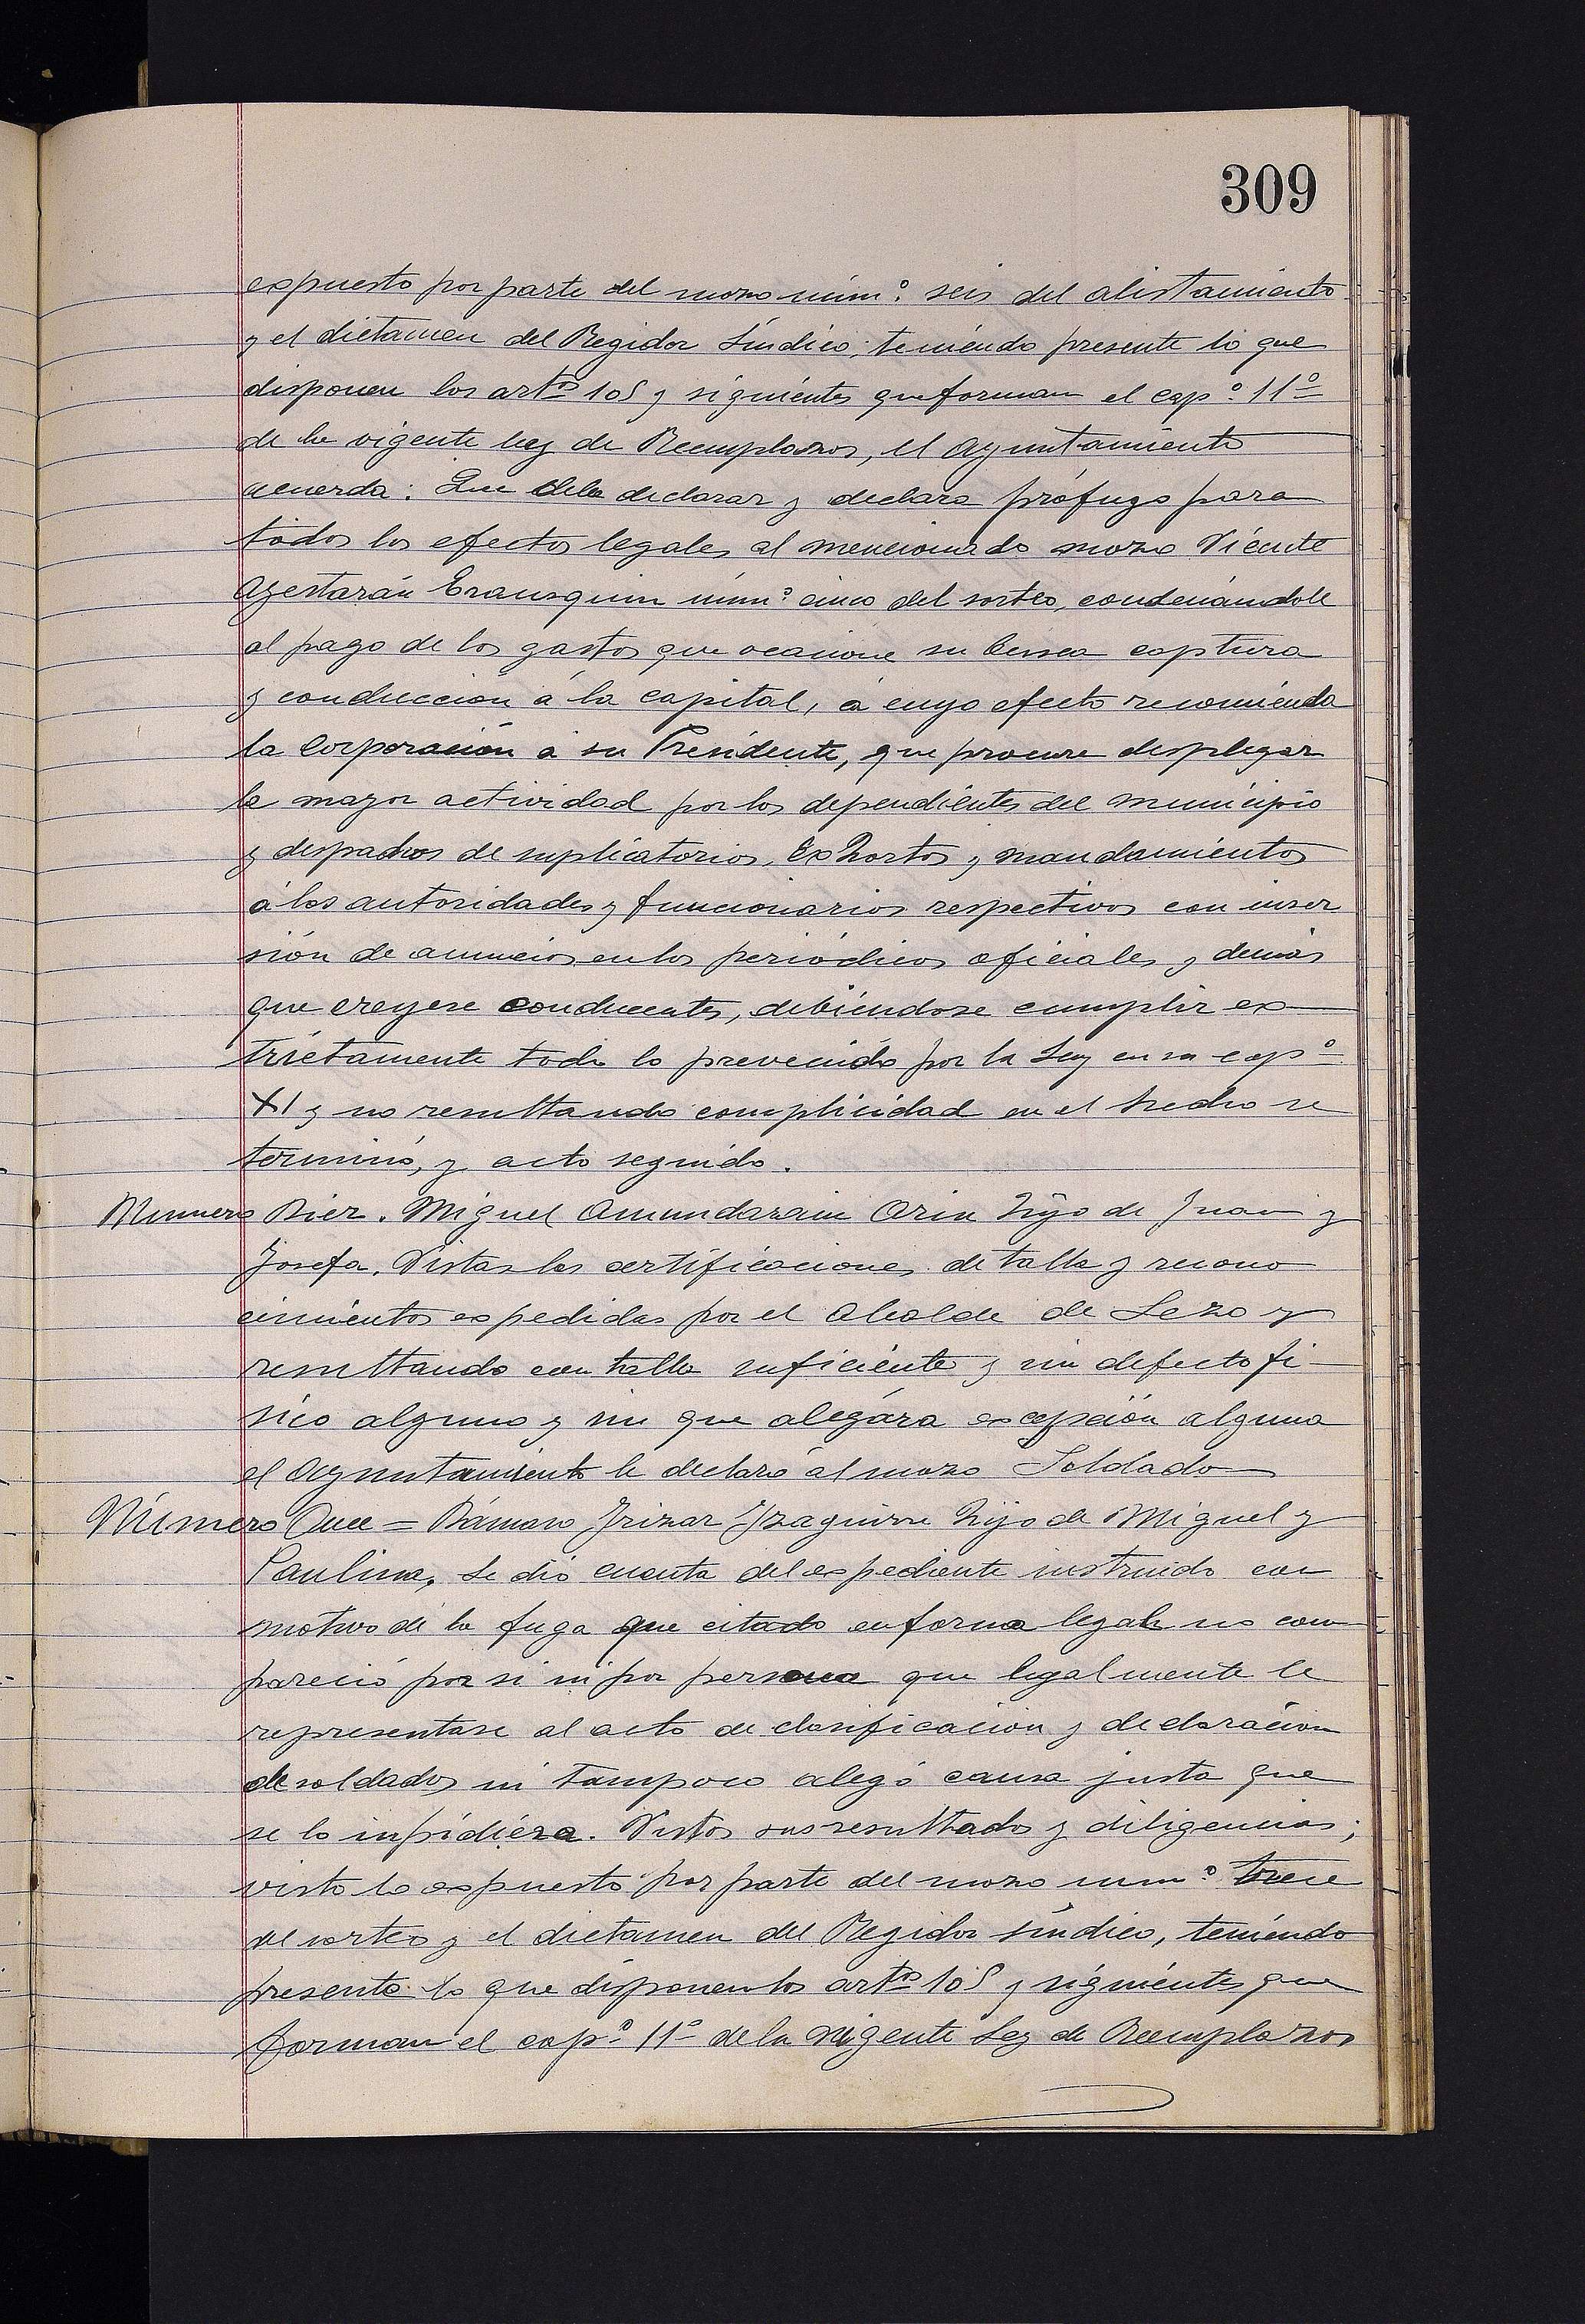 309
expuesto por parte del mozo núm.º seis del alistamiento
y el dictamen del Regidor Síndico; teniendo presente lo que
disponen los artos 105 y siguientes que forman el capº 11º
de la vigente ley de Reemplazos, el Ayuntamiento
acuerda: Que debe declarar y declara prófugo para
todos los efectos legales al mencionado mozo Vicente
Ayestarán Erausquin númº cinco del sorteo, condenándole
al pago de los gastos que ocasione su busca captura
y conducción á la capital, á cuyo efecto recomienda
la Corporación á su Presidente, que procure desplegar
la mayor actividad por los dependientes del municipio
y despachos de suplicatorios, Exhortos y mandamientos
á las autoridades y funcionarios respectivos con inser
sión de anuncios en los periódicos oficiales y demás
que creyese conducentes, debiéndose cumplir ex
trictamente todo lo prevenido por la Ley en su capº
XI y no resultando complicidad en el hecho se
terminó, y acto seguido.
Número Diez. Miguel Amundarain Orin hijo de Juan y
Josefa. Vistas las certificaciones de talla y recono
cimientos expedidas por el Alcalde de Lezo y
resultando con talla suficiente y sin defecto fi
sico alguno y sin que alegára excepción alguna
el Ayuntamiento le declaró al mozo Soldado
Número Once = Dámaso Irizar Yzaguirre hijo de Miguel y
Paulina, Se dió cuenta del expediente instruido con
motivo de la fuga que citado en forma legal no com
pareció por si ni por persona que legalmente le
representase al acto de clasificación y declaración
de soldados ni tampoco alegó causa justa que
se lo inpidiéra. Vistos sus resultados y diligencias;
visto lo expuesto por parte del mozo numº trece
del sorteo y el dictamen del Regidor síndico, teniendo
presente lo que disponen los artos 105 y siguientes que
forman el capº 11º de la vigente Ley de Reemplazos